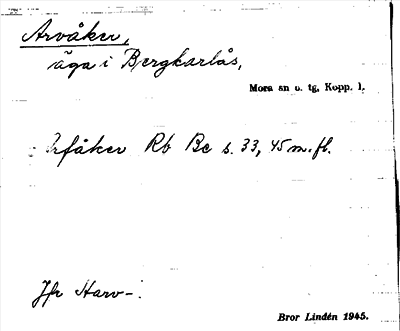 Arvåker,
äga i Bergkarlås,
Mora sn o. tg, Kopp. l.
Arfåker Rb Be s. 33, 45 m. fl.
Jfr Harv-.
Bror Lindén 1945.